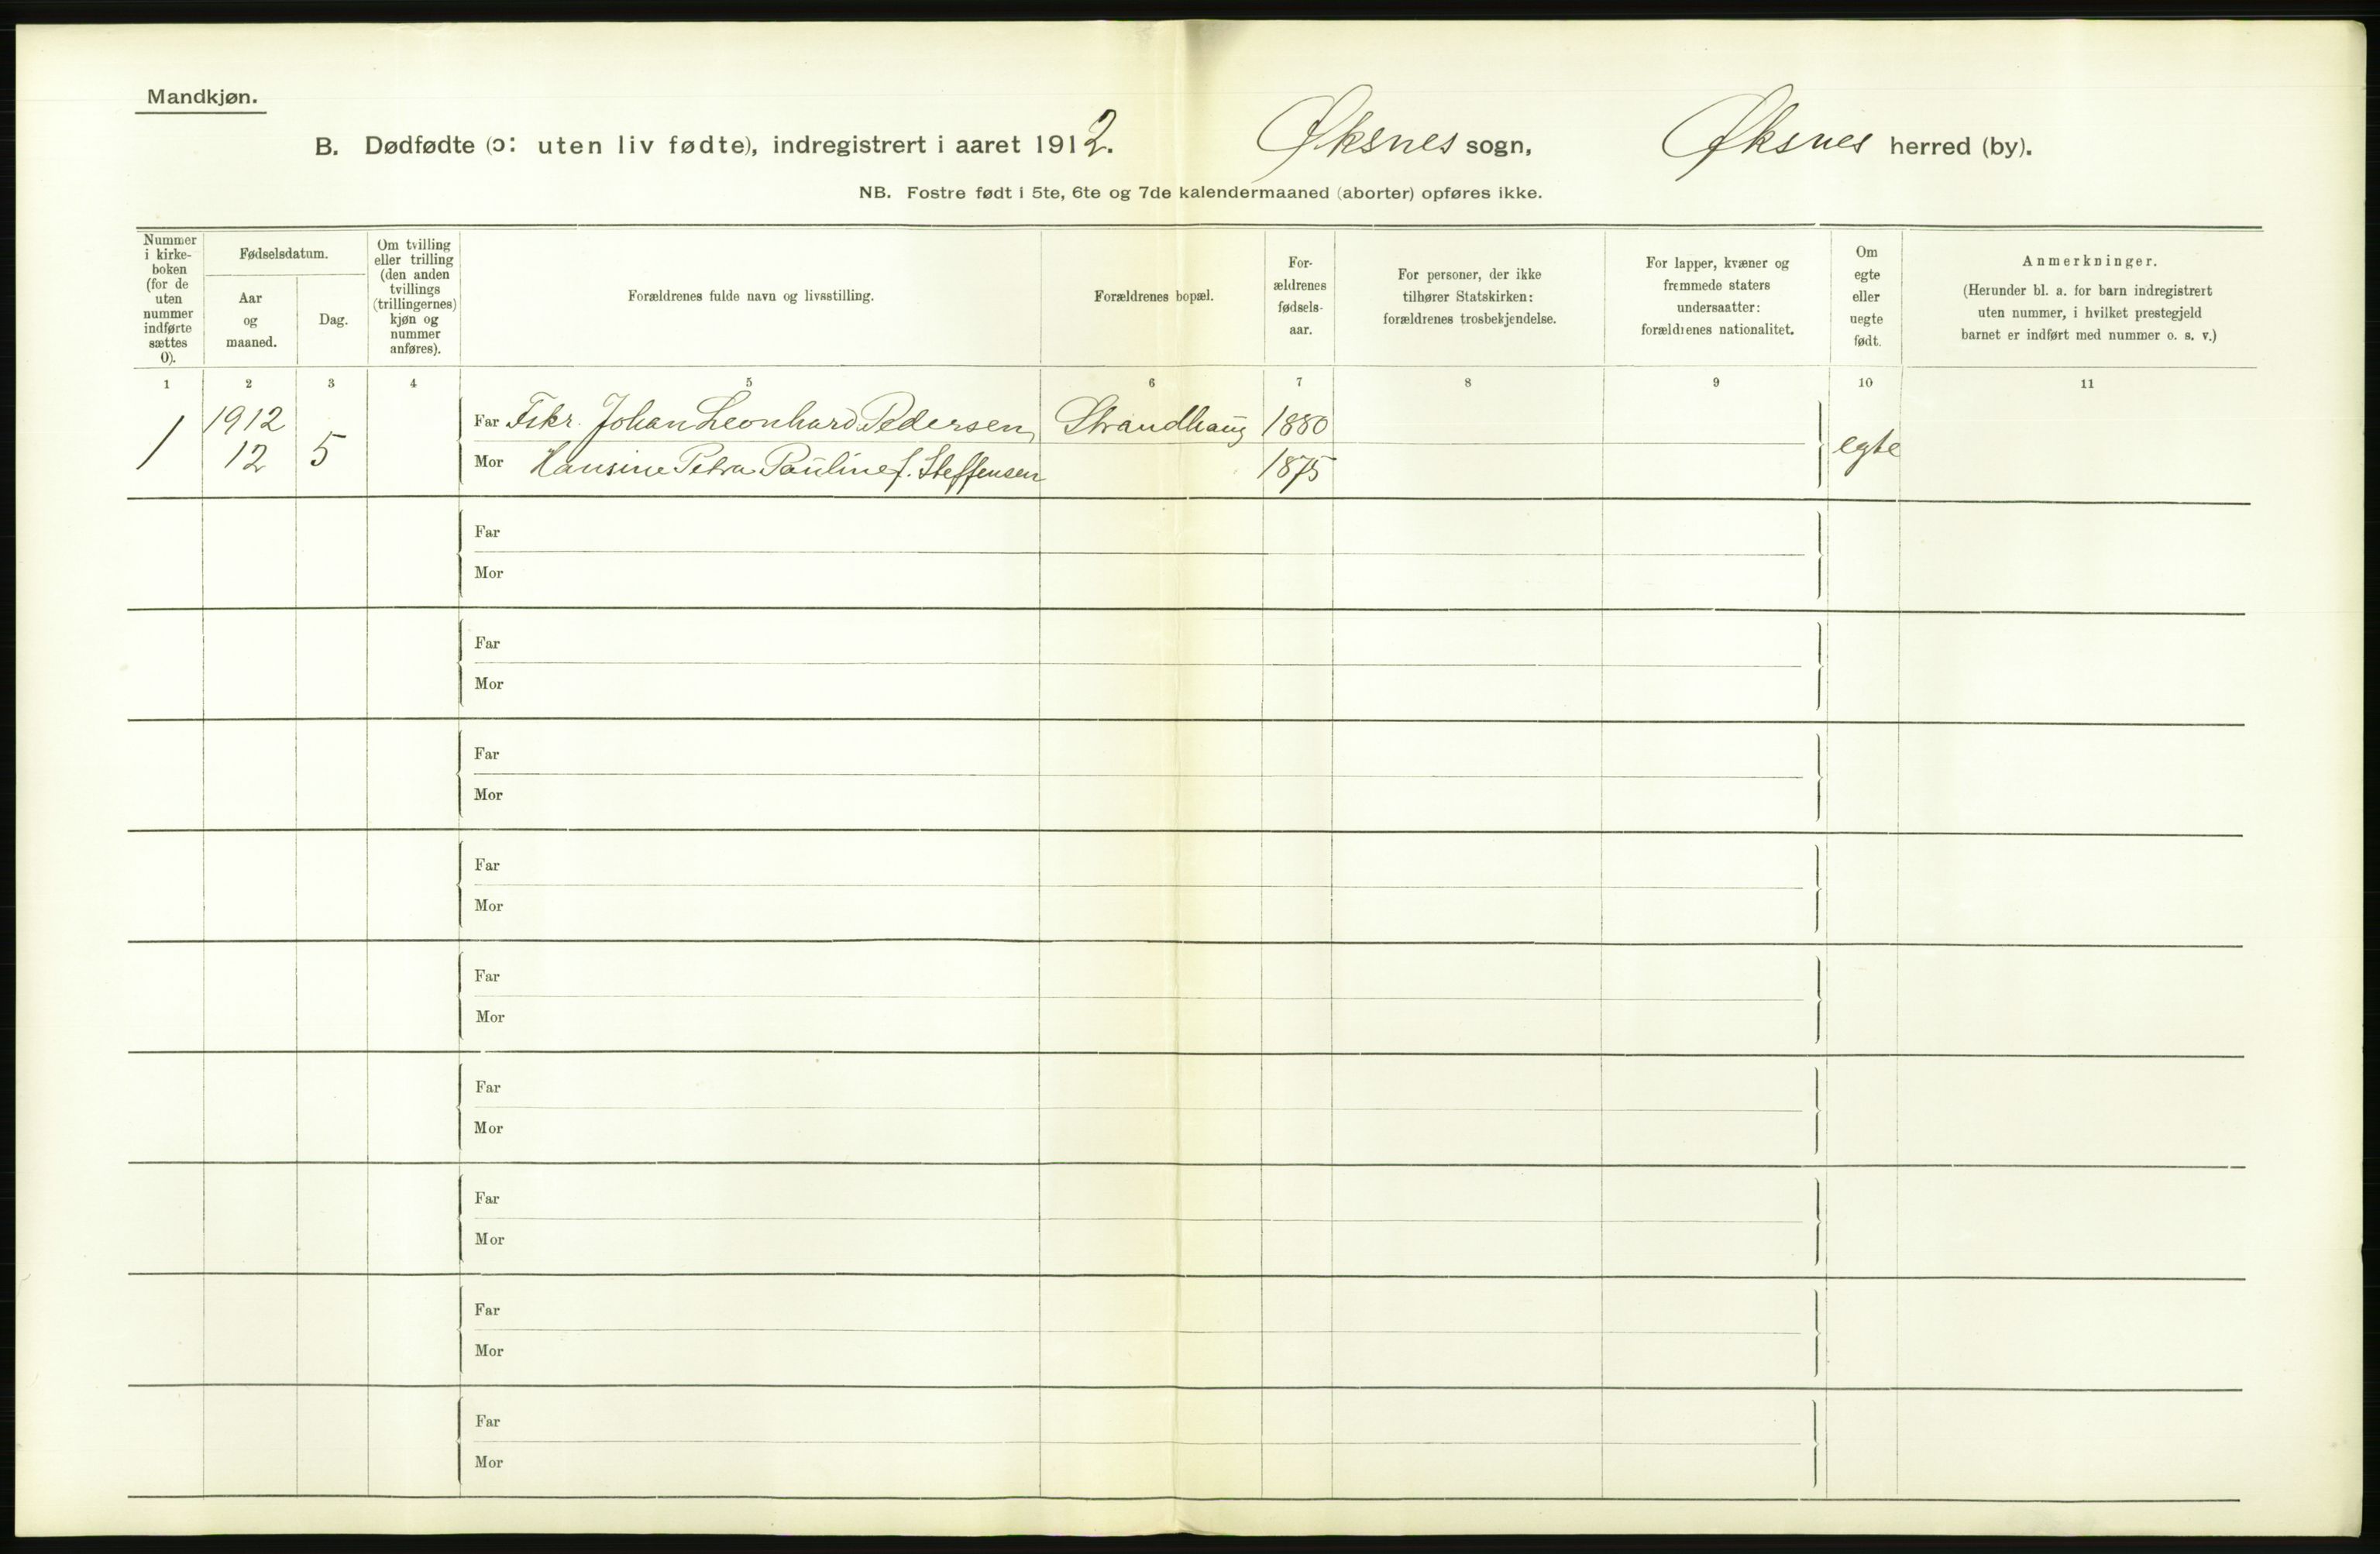 Mandkjøn.
B. Dødfødte (ɔ: uten liv fødte), indregistrert i aaret 1912. Øksnes sogn, Øksnes herred (by).
NB. Fostre født i 5te, 6te og 7de kalendermaaned (aborter) opføres ikke.
Nummer
i kirke-
boken
(for de
uten
nummer
indførte
sættes
0).
Fødselsdatum.
Aar
og
maaned.
Dag.
Om tvilling
eller trilling
(den anden
tvillings
(trillingernes)
kjøn og
nummer
anføres).
Forældrenes fulde navn og livsstilling.
Forældrenes bopæl.
For-
ældrenes
fødsels-
aar.
For personer, der ikke
tilhører Statskirken:
forældrenes trosbekjendelse.
For lapper, kvæner og
fremmede staters
undersaatter:
forældrenes nationalitet.
Om
egte
eller
uegte
født.
Anmerkninger.
(Herunder bl. a. for barn indregistrert
uten nummer, i hvilket prestegjeld
barnet er indført med nummer o. s. v.)
1 2 3 4 5 6 7 8 9 10 11
1 1912 12 5
Far Fskr. Johan Leonhard Pedersen, Strandhaug 1880
Mor Hansine Petra Pauline f. Steffensen 1875
egte
Far
Mor
Far
Mor
Far
Mor
Far
Mor
Far
Mor
Far
Mor
Far
Mor
Far
Mor
Far
Mor